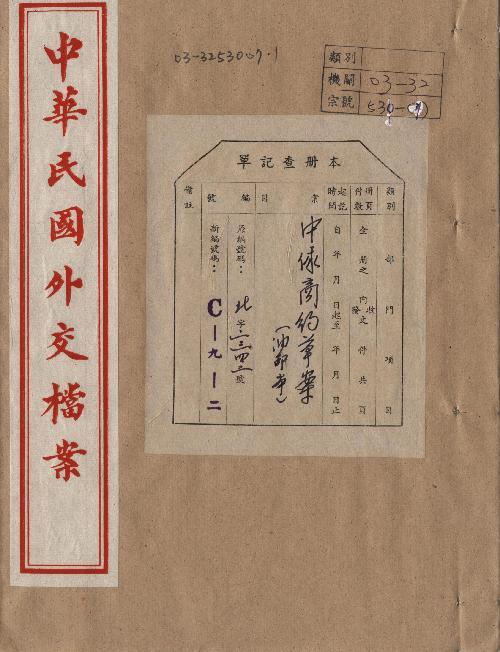 中華民國外交檔案
03-3253007.1
類別
機關 03-32
宗號 530-
本册查記單
類別 部門項目
册頁付數 全卷之內收發文件共頁
起訖時間 自年月日起至年月日止
案目
中俄商約草案
編號
原編號碼：北字一三四二號
新編號碼：C—九—二
備註